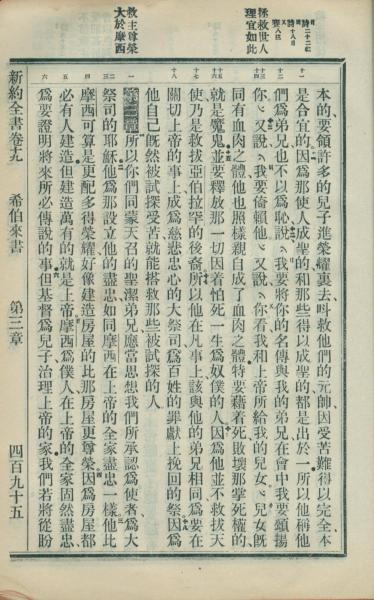 拯救世人
理宜如此
救主尊榮
大於摩西
本的要領許多的兒子進榮耀裏去呌救他們的元帥因受苦難得以完全本
十一 是合宜的因爲那使人成聖的和那些得以成聖的都是出於一所以他稱他
十二 們爲弟兄也不以爲恥說我要將你的名傳與我的弟兄在會中我要頌揚
十三 你又說我要倚賴他又說你看我和上帝所給我的兒女兒女旣
十四 同有血肉之體他也照樣親自成了血肉之體特要藉着死敗壞那掌死權的
十五 就是魔鬼並要釋放那一切因着怕死一生爲奴僕的人因爲他並不救拔天
十六 十七 使乃是救拔亞伯拉罕的後裔所以他在凡事上該與他的弟兄相同爲要在
十八 關切上帝的事上成爲慈悲忠心的大祭司爲百姓的罪獻上挽回的祭因爲
他自己旣然被試探受苦就能搭救那些被試探的人
一 第三章 所以你們同蒙天召的聖潔弟兄應當思想我們所承認爲使者爲大
二 三 祭司的耶穌他爲那設立他的盡忠如同摩西在上帝的全家盡忠一樣他比
四 摩西可算是更配多得榮耀好像建造房屋的比那房屋更尊榮因爲房屋都
五 必有人建造但建造萬有的就是上帝摩西爲僕人在上帝的全家固然盡忠
六 爲要證明將來所必傳說的事但基督爲兒子治理上帝的家我們若將從盼
新約全書卷十九 希伯來書 第三章 四百九十五